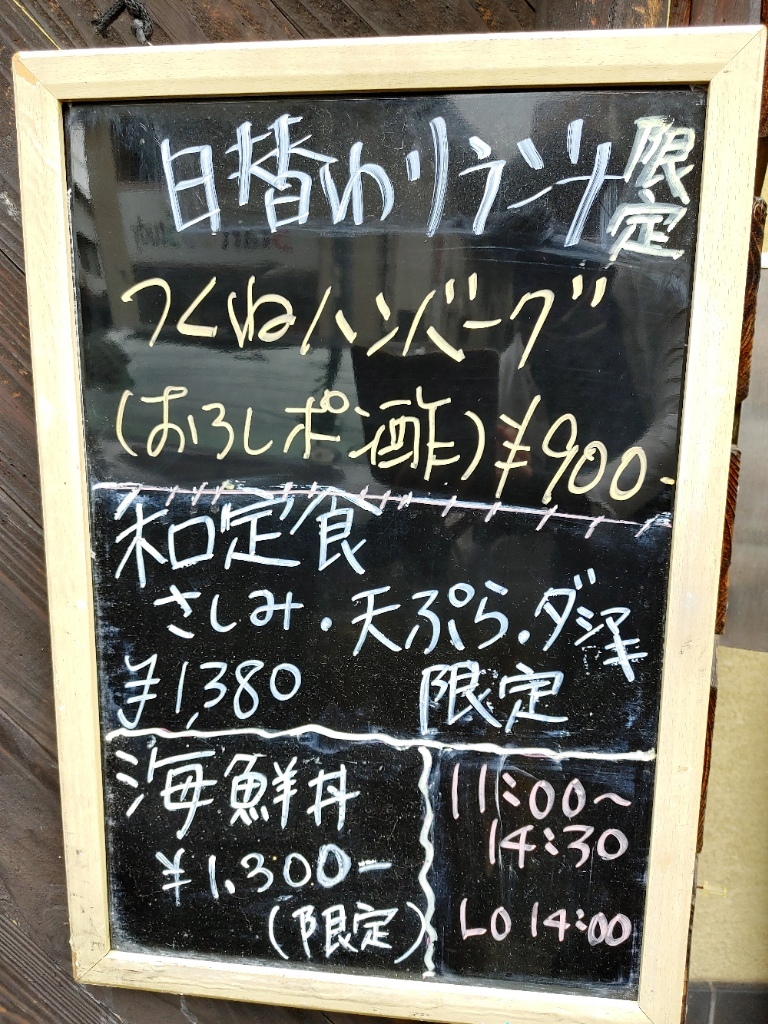 日替わりランチ 限定
つくねハンバーグ
(おろしポン酢)¥900-
和定食
さしみ・天ぷら・ダシ
¥1,380 限定
海鮮丼
¥1,300-
(限定)
11:00〜
14:30
LO 14:00